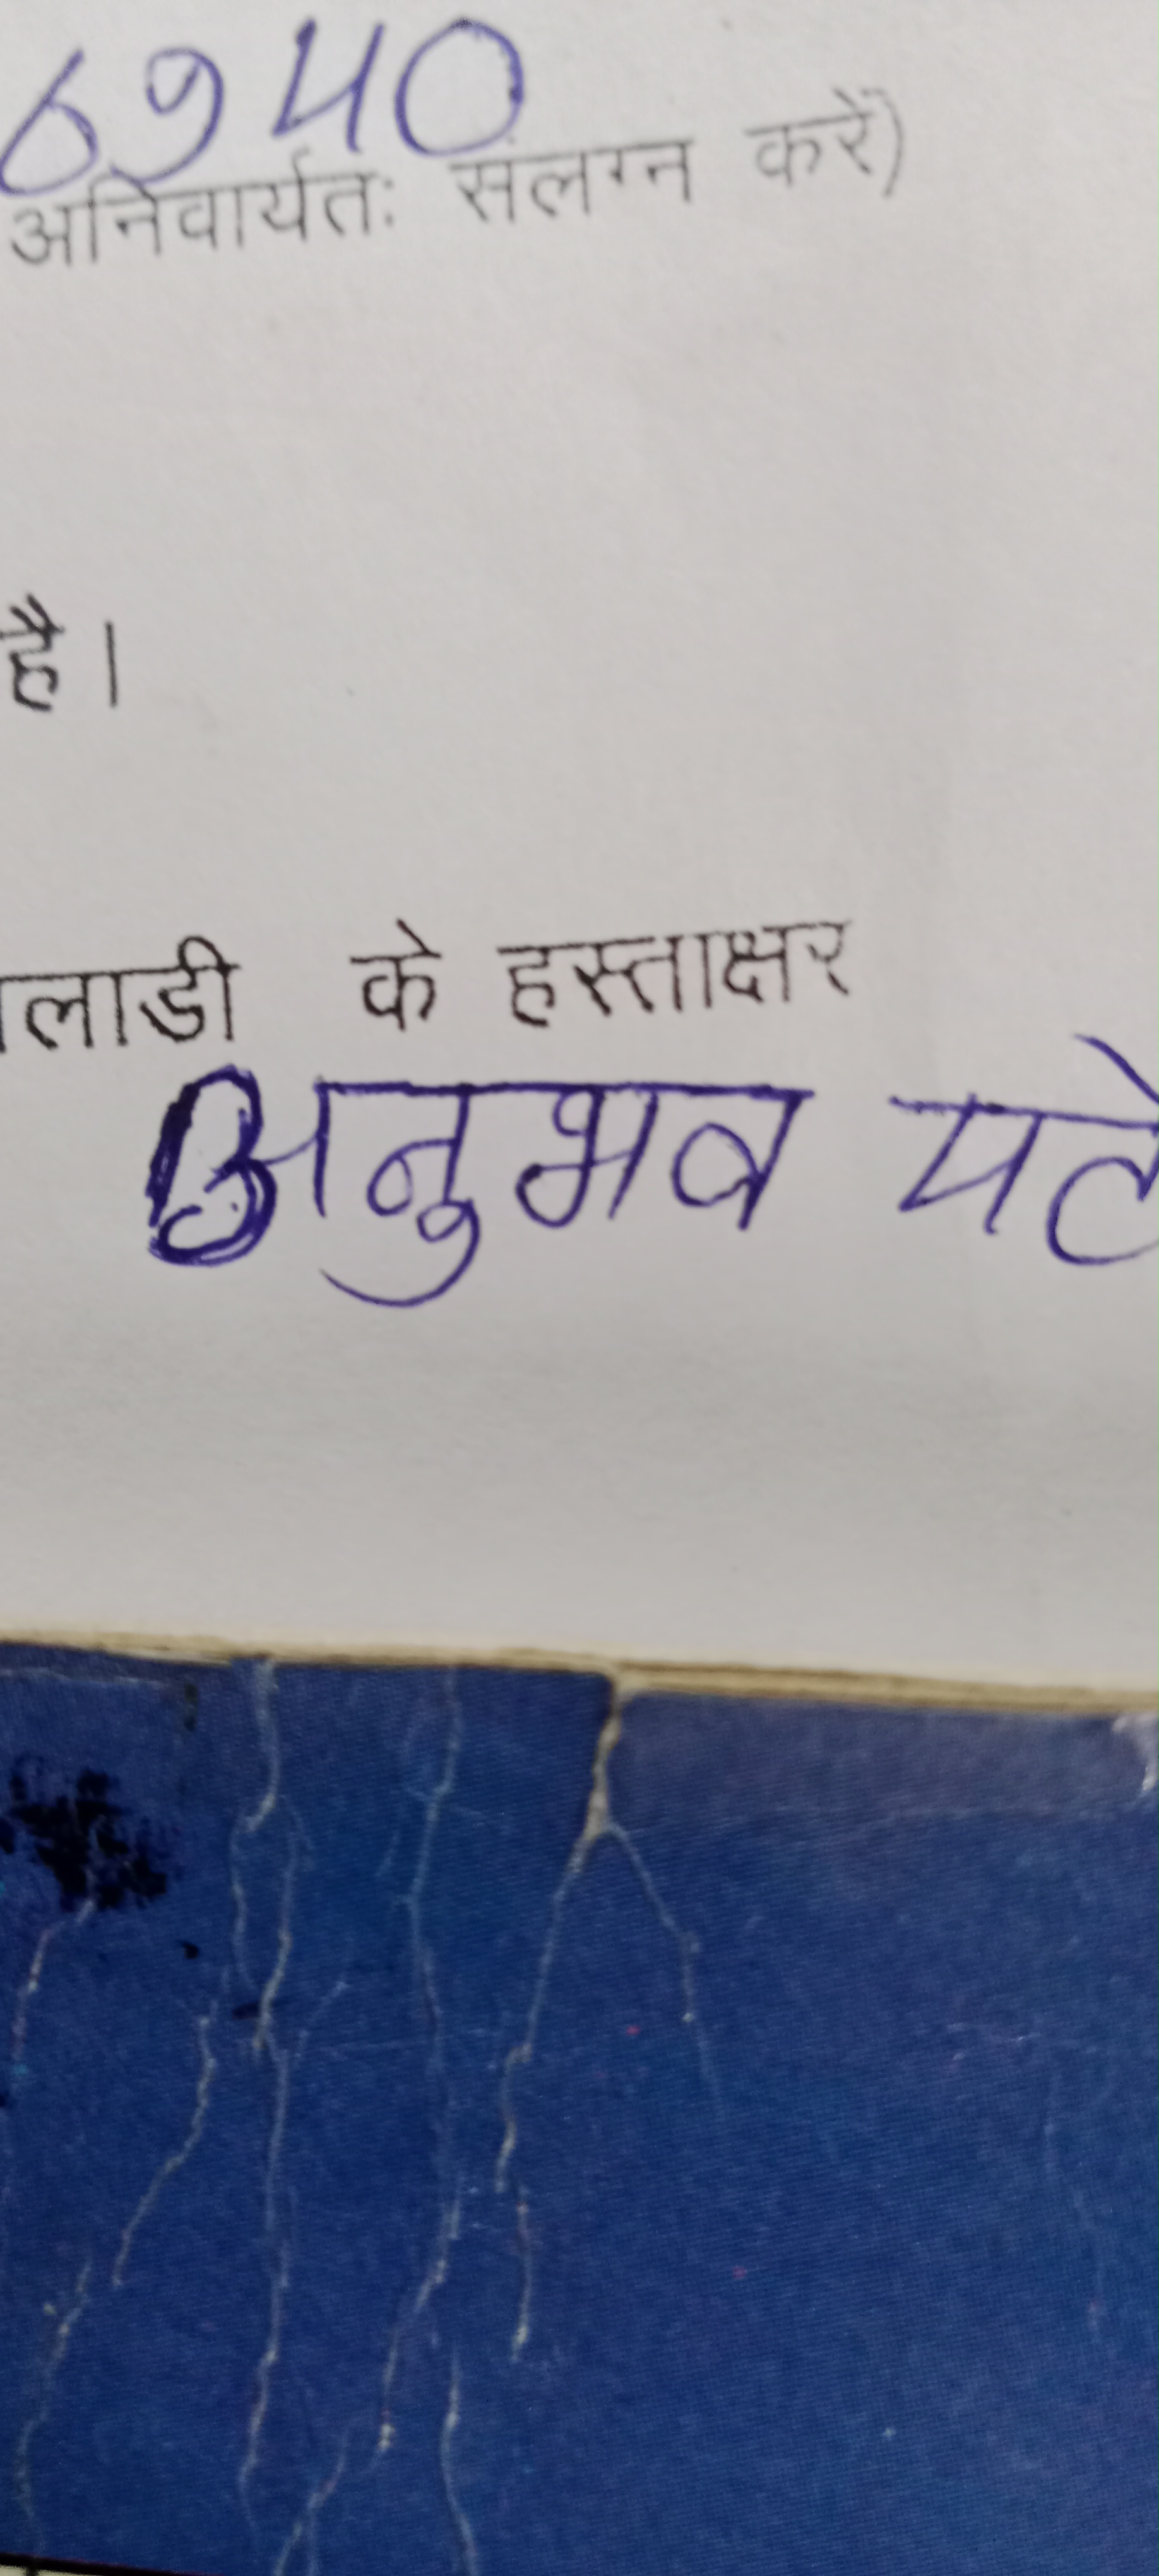 6940
अनिवार्यतः संलग्न करें)
है।
लाडी के हस्ताक्षर
अनुभव पटे